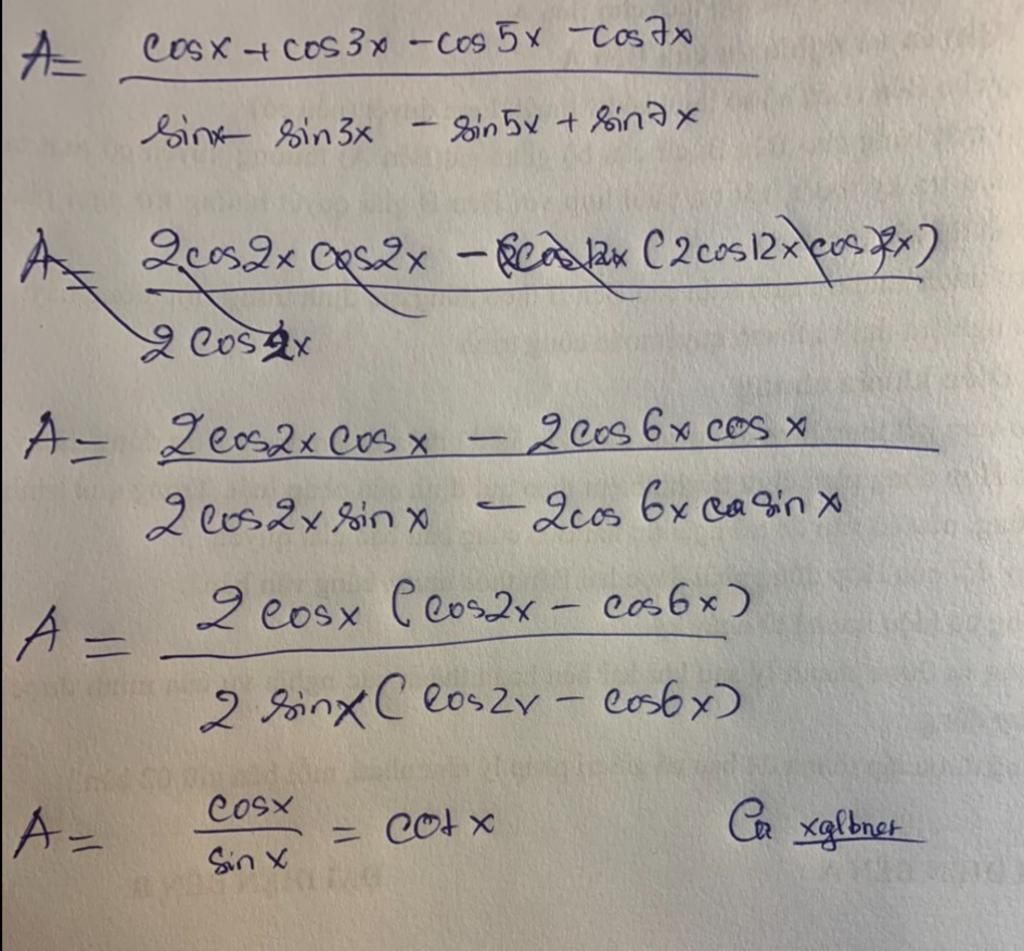 A = cosx + cos3x - cos5x - cos7x
sinx - sin3x - sin5x + sin7x
A = 2cos2x cos2x - (2cos12x cos2x)
2 cos2x
A = 2cos2x cosx - 2cos6x cosx
2cos2x sinx - 2cos6x sinx
A = 2cosx (cos2x - cos6x)
2 sinx (cos2x - cos6x)
A = cosx / sinx = cotx